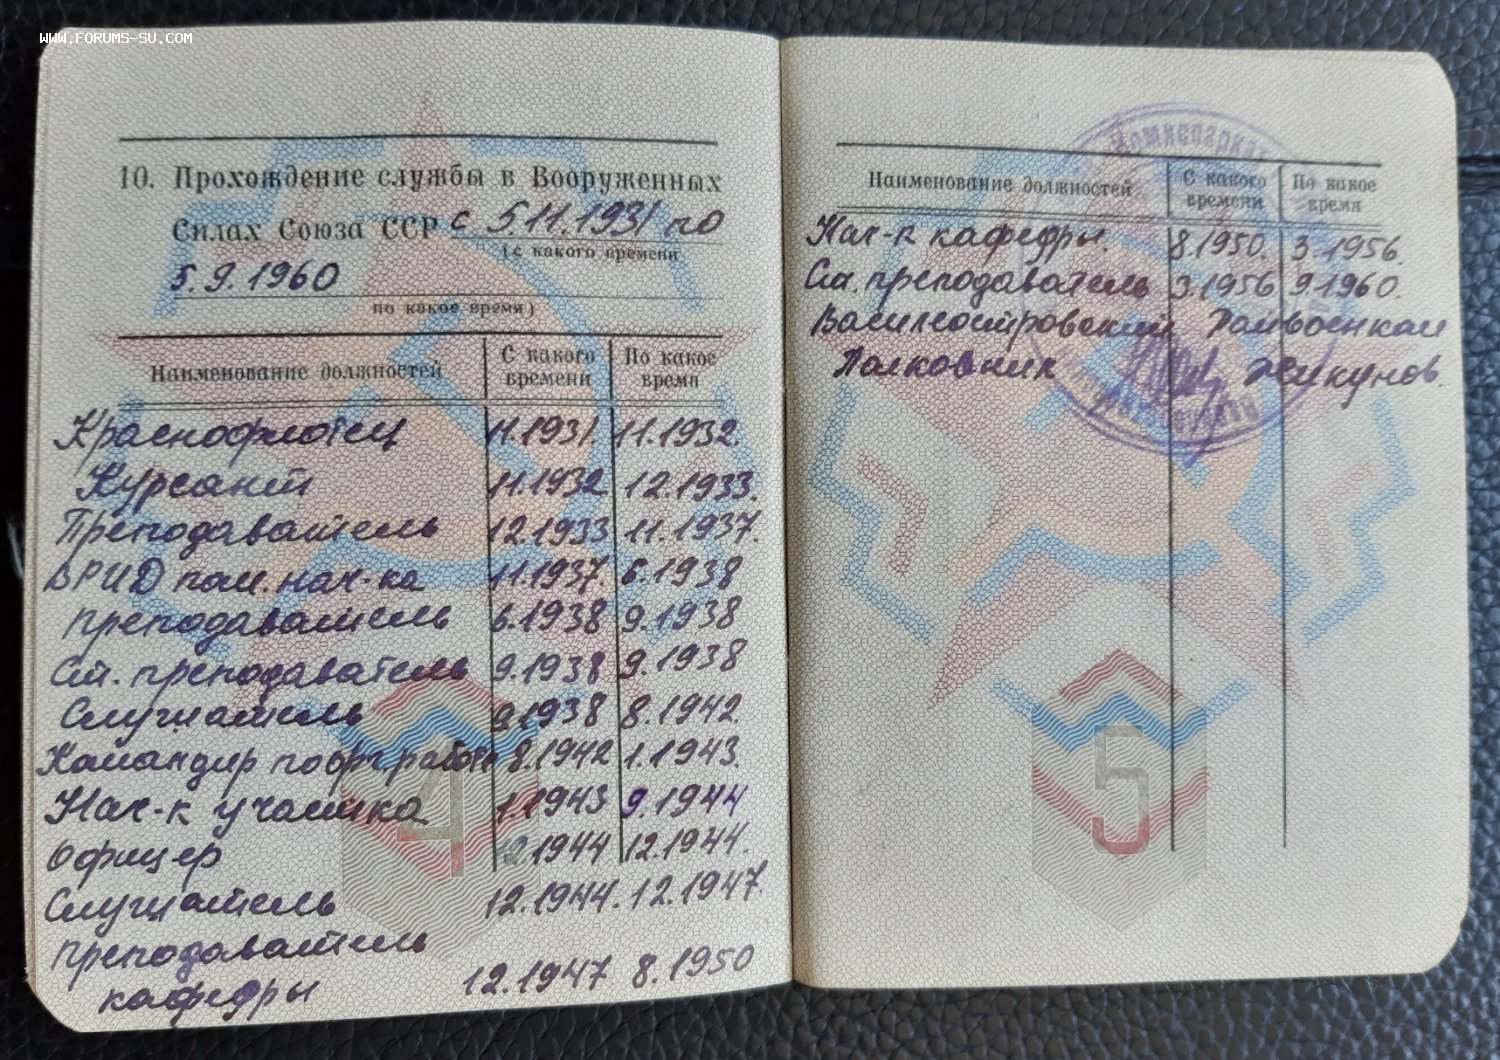 WWW.FORUMS-SU.COM
10. Прохождение службы в Вооруженных
Силах Союза ССР с 5.11.1931 по
(с какого времени
5.9.1960
по какое время)
Наименование должностей С какого времени По какое время
Краснофлотец 11.1931. 11.1932.
Курсант 11.1932 12.1933.
Преподаватель 12.1933 11.1937.
ВРИД пом. нач-ка 11.1937. 6.1938
Преподаватель 6.1938 9.1938
Ст. преподаватель 9.1938 9.1938
Слушатель 9.1938 8.1942.
Командир 8.1942 1.1943.
Нач-к участка 1.1943 9.1944
Офицер 1944 12.1944.
Слушатель 12.1944. 12.1947.
Преподаватель
кафедры 12.1947 8.1950
4
Наименование должностей С какого времени По какое время
Нач-к кафедры. 8.1950. 3.1956.
Ст. преподаватель 3.1956 9.1960.
Василеостровский Райвоенком
Полковник Жикунов.
5